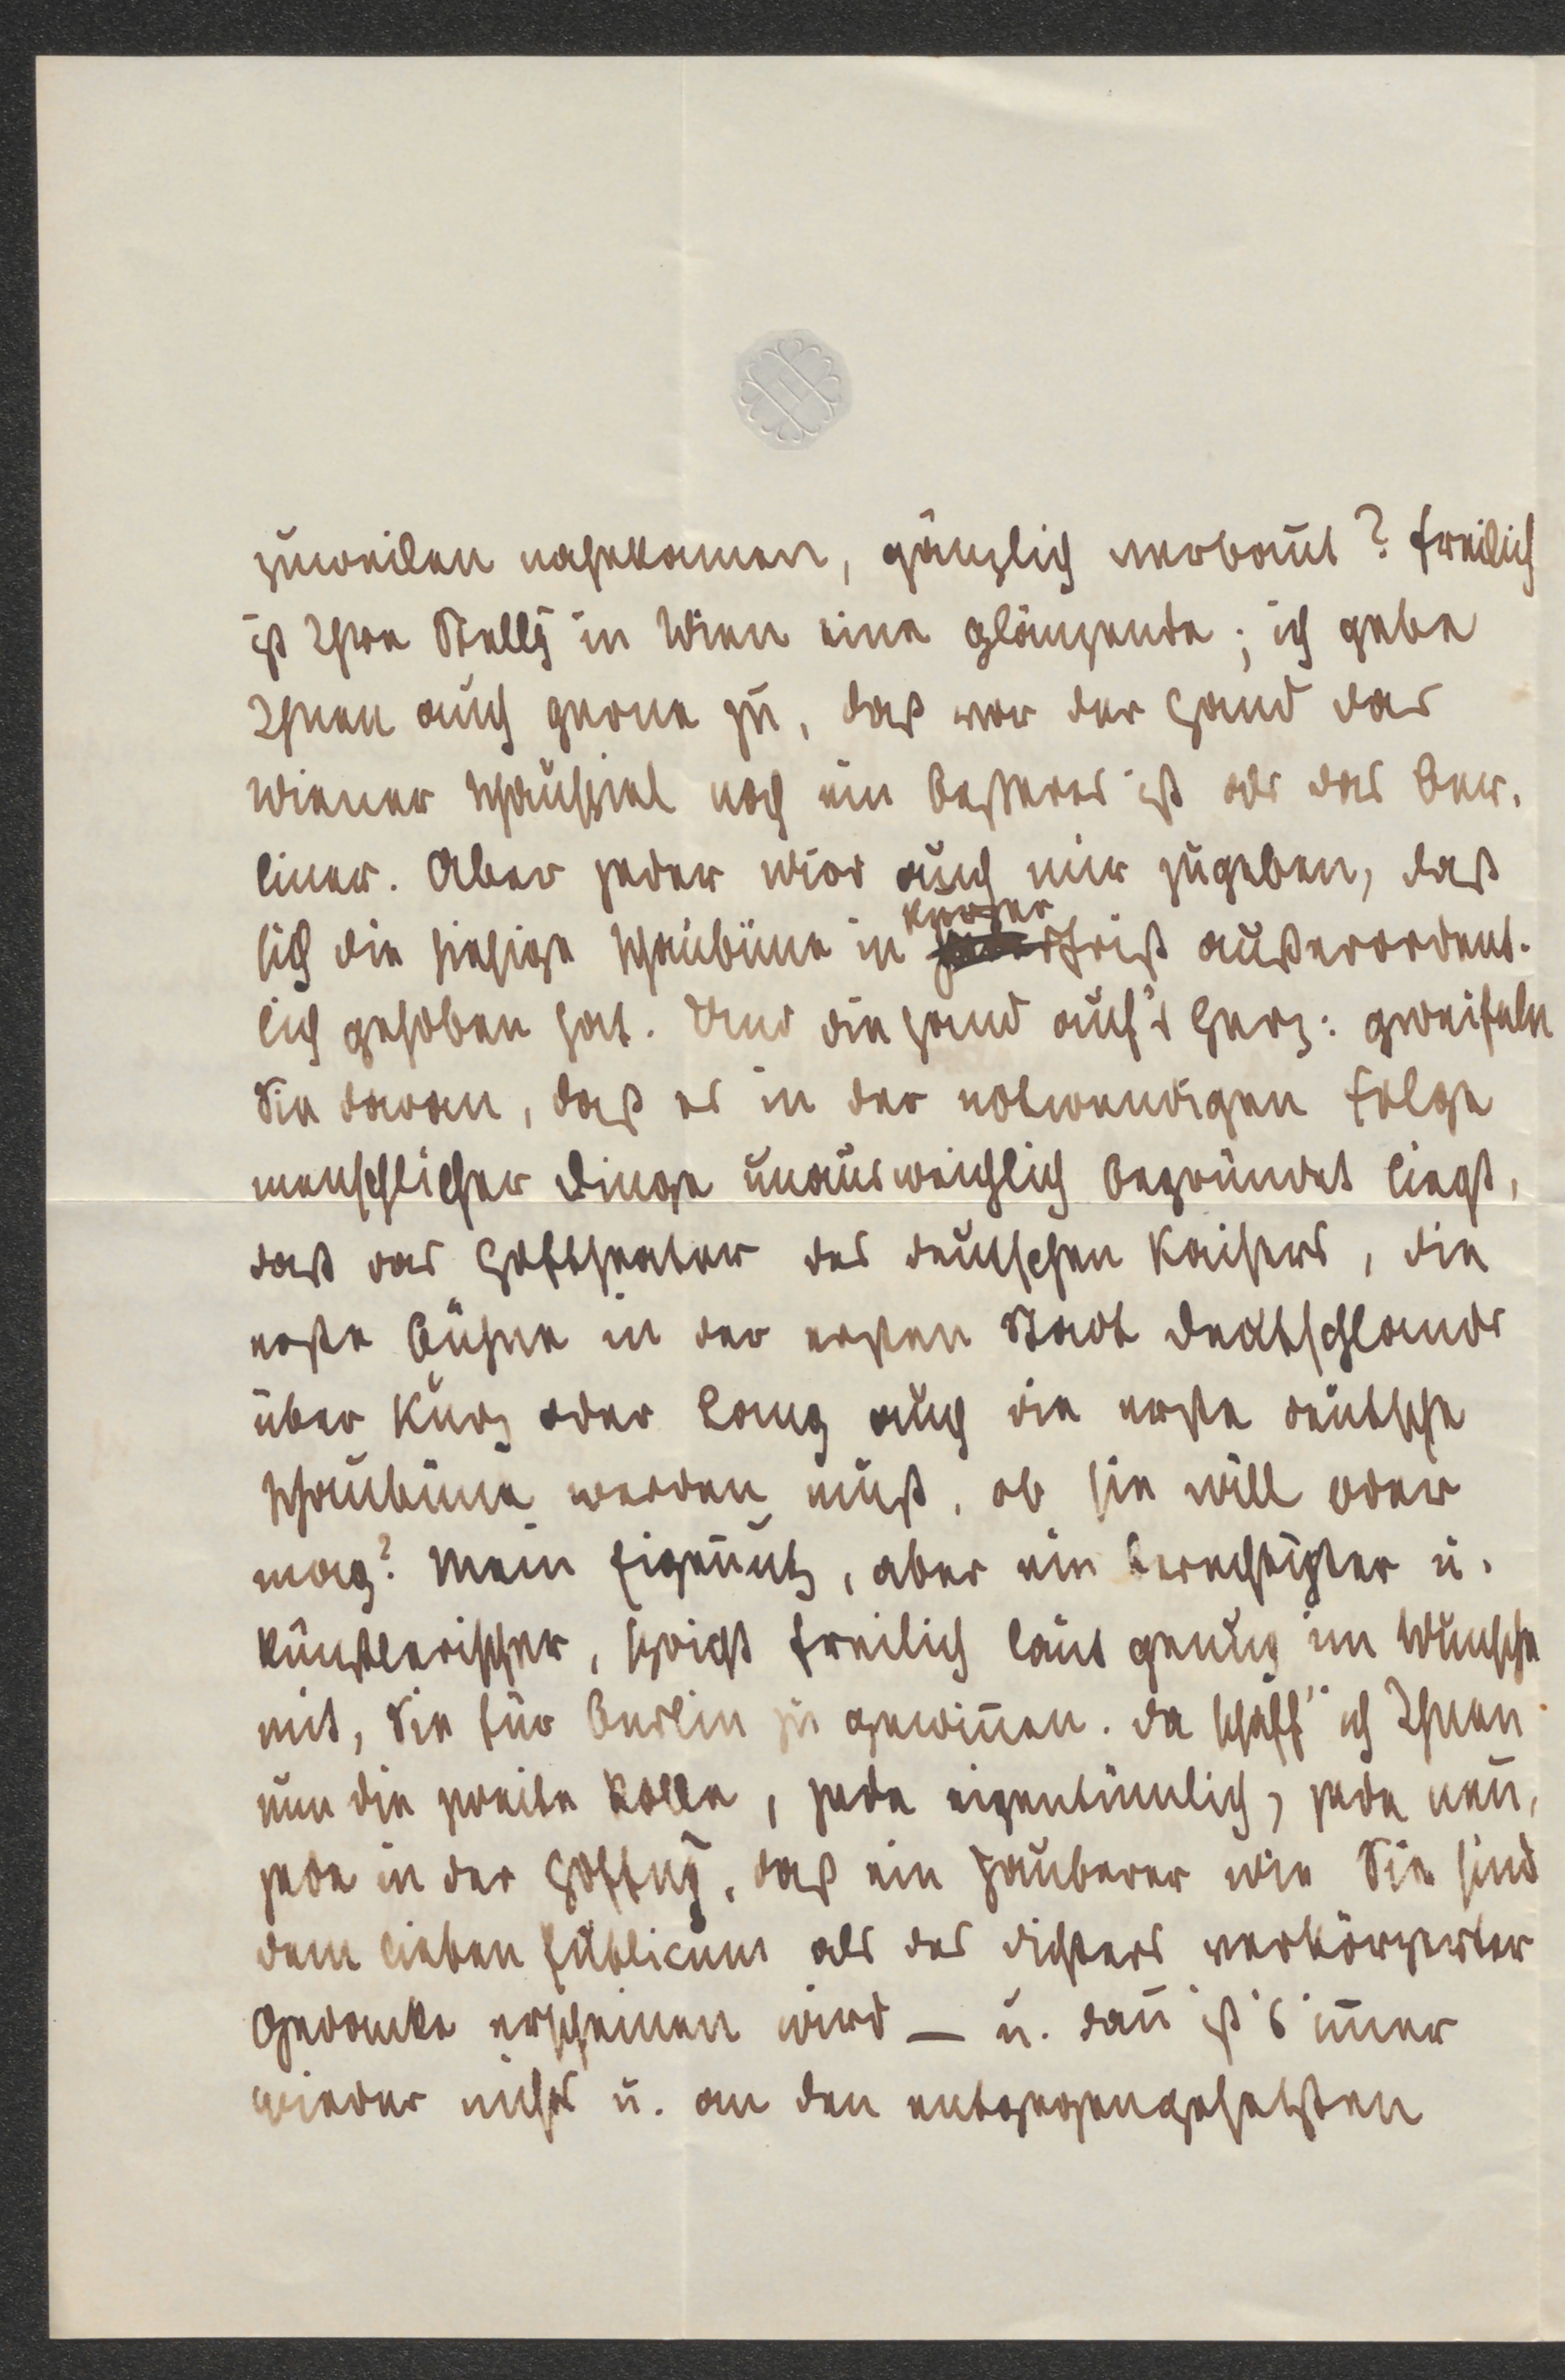 zuweilen nahekamen, gänzlich verbaut? Freilich
ist Ihre Stellg in Wien eine glänzende; ich gebe
Ihnen auch gerne zu, daß vor der Hand das
Wiener Schauspiel noch ein besseres ist als das Ber-
liner. Aber jeder wird auch mir zugeben, daß
sich die hiesige Schaubüne in kurzer Frist außerordent-
lich gehoben hat. Und die Hand auf's Herz: zweifeln
Sie daran, daß es in der notwendigen Folge
menschlicher Dinge unausweichlich begründet liegt,
daß das Hoftheater des deutschen Kaisers, die
erste Bühne in der ersten Stadt Deutschlands
über kurz oder lang auch die erste deutsche
Schaubüne werden muß, ob sie will oder
mag? Mein Eigenutz, aber ein berechtigter u.
künstlerischer, spricht freilich laut genug im Wunsche
mit, Sie für Berlin zu gewinen. Da schaff' ich Ihnen
nun die zweite Rolle, jede eigentümlich, jede neu,
jede in der Hoffng, daß ein Zauberer wie Sie sind
dem lieben Publicum als des Dichters verkörperter
Gedanke erscheinen wird – u. dan ist's imer
wieder nichts u. an den entgegengesetzten